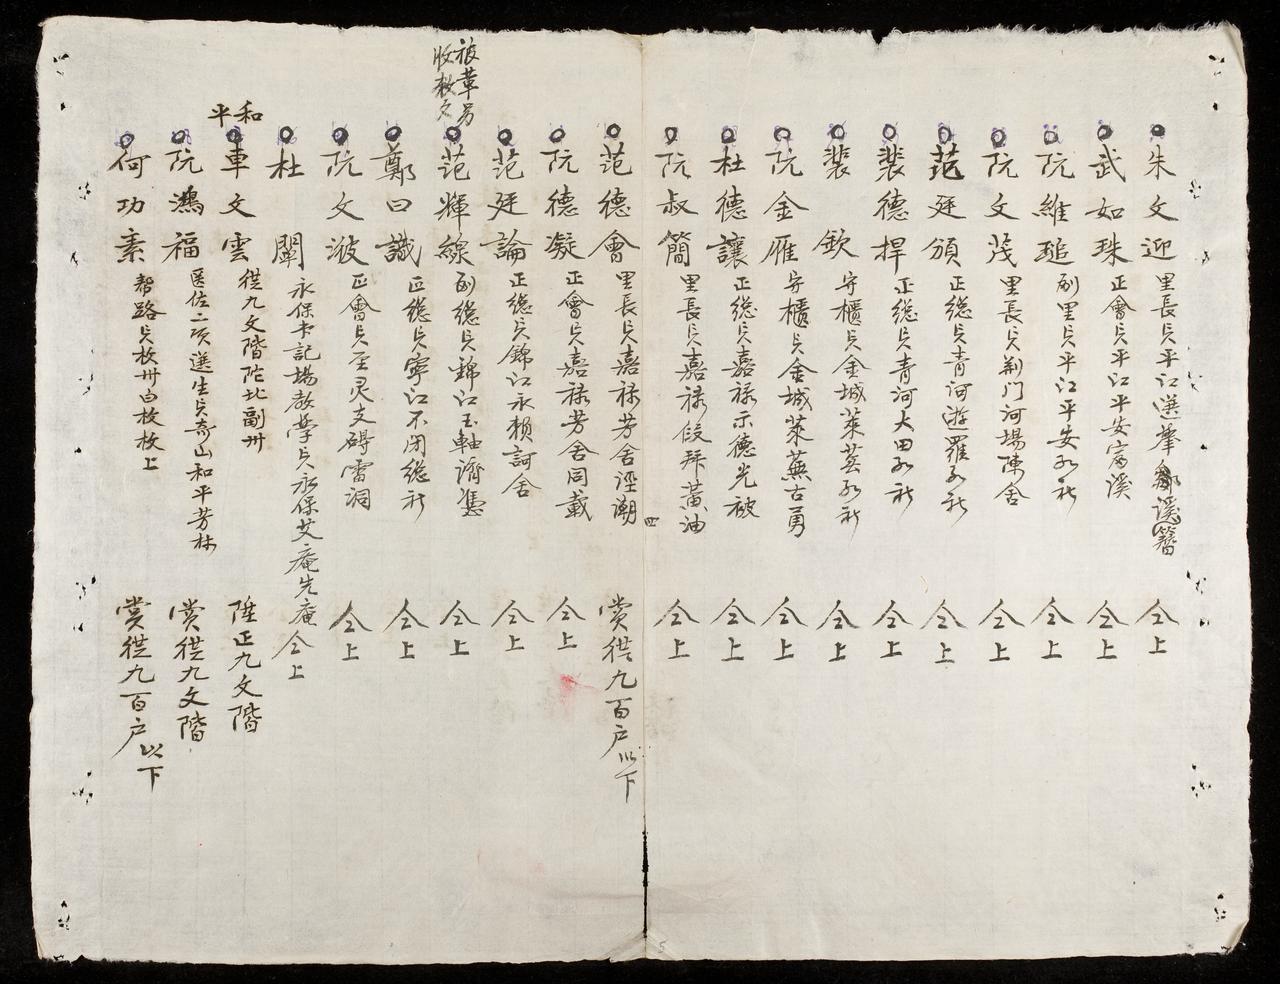 朱文迎 里長貟平江選舉 溪簪 仝上
武如珠 正會貟平江平安富溪 仝上
阮維 副里貟平江平安 社 仝上
阮文茂 里長貟荊門河場陳舍 仝上
范廷頒 正總貟青河遊羅 社 仝上
裴德捍 正總貟青河大田 社 仝上
裴欽 守櫃貟金城萊 社 仝上
阮金雁 守櫃貟金城萊蕪古勇 仝上
杜德讓 正總貟嘉祿示德光被 仝上
阮叔簡 里長貟嘉祿段拜黃油 仝上
四
范德會 里長貟嘉祿芳舍 潮 賞從九百户以下
阮德凝 正會貟嘉祿芳舍同載 仝上
范廷論 正總貟錦江永賴訶舍 仝上
被革另
收敕文
范輝線 副總貟錦江玉軸濟 仝上
鄭曰識 正總貟寧江不閉總社 仝上
阮文波 正會貟至灵支碍雷洞 仝上
杜闡 永保书記場教學貟永保艾庵先庵仝上
和平
車文雲 從九文階陀北副州 陞正九文階
阮鴻福 医佐二項選生貟奇山和平芳林 賞從九文階
何功素 帮路貟枚州白枚枚上 賞從九百户以下
5